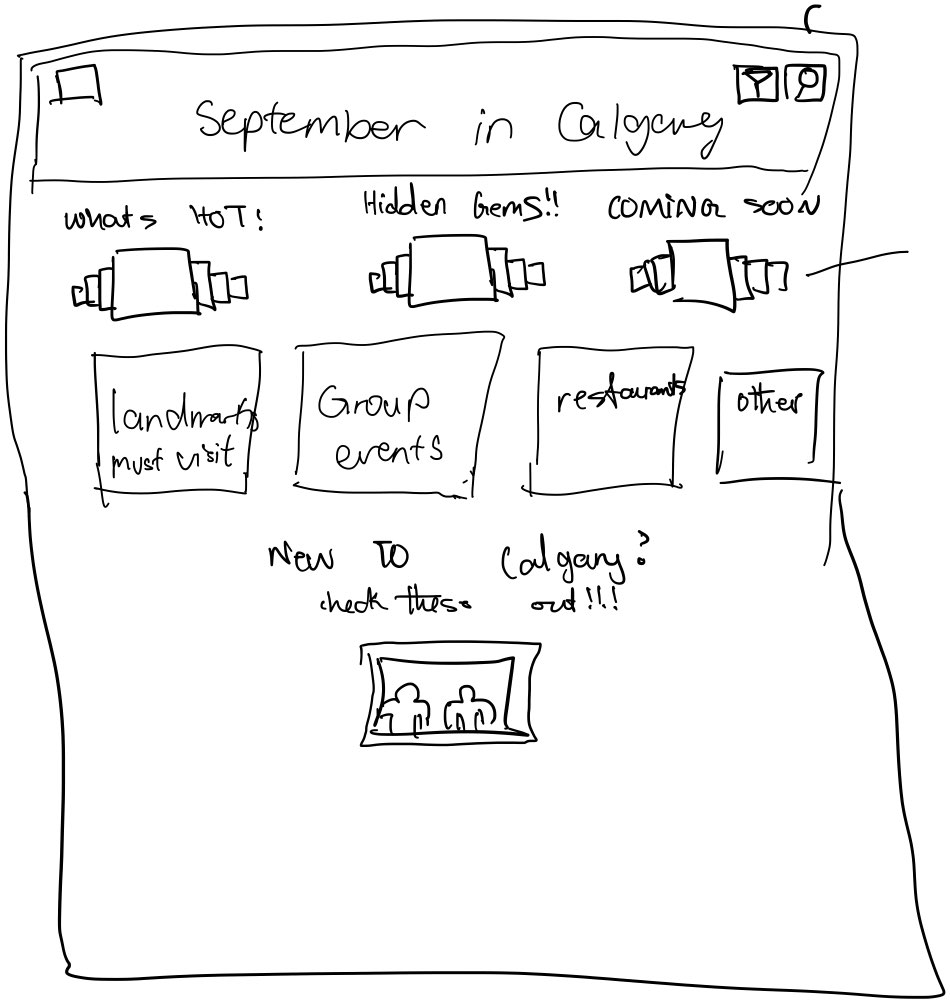 September in Calgary
Whats HOT!
Hidden Gems!!
COMING SOON
landmarks
must visit
Group
events
restaurants
other
New TO Calgary?
check these out!!!